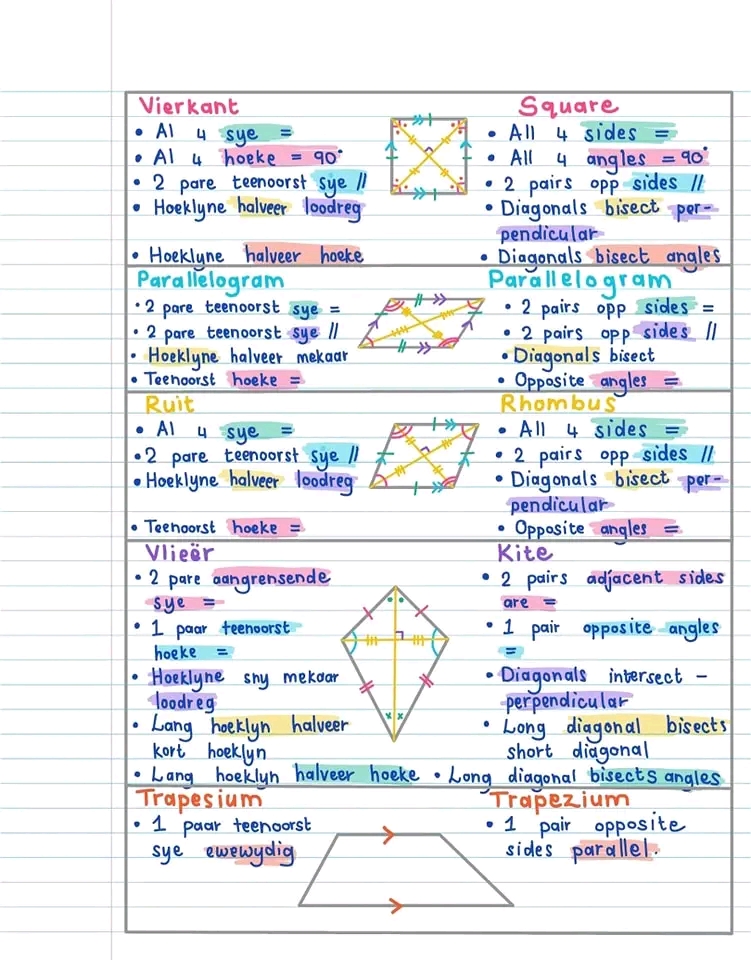 Vierkant
• Al 4 sye =
• Al 4 hoeke = 90°
• 2 pare teenoorst sye //
• Hoeklyne halveer loodreg
• Hoeklyne halveer hoeke
Square
• All 4 sides =
• All 4 angles = 90°
• 2 pairs opp sides //
• Diagonals bisect per-
pendicular
• Diagonals bisect angles
Parallelogram
• 2 pare teenoorst sye =
• 2 pare teenoorst sye //
• Hoeklyne halveer mekaar
• Teenoorst hoeke =
Parallelogram
• 2 pairs opp sides =
• 2 pairs opp sides //
• Diagonals bisect
• Opposite angles =
Ruit
• Al 4 sye =
• 2 pare teenoorst sye //
• Hoeklyne halveer loodreg
• Teenoorst hoeke =
Rhombus
• All 4 sides =
• 2 pairs opp sides //
• Diagonals bisect per-
pendicular
• Opposite angles =
Vlieër
• 2 pare aangrensende
sye =
• 1 paar teenoorst
hoeke =
• Hoeklyne sny mekaar
loodreg
• Lang hoeklyn halveer
kort hoeklyn
• Lang hoeklyn halveer hoeke
Kite
• 2 pairs adjacent sides
are =
• 1 pair opposite angles
=
• Diagonals intersect -
perpendicular
• Long diagonal bisects
short diagonal
• Long diagonal bisects angles
Trapesium
• 1 paar teenoorst
sye ewewydig
Trapezium
• 1 pair opposite
sides parallel.